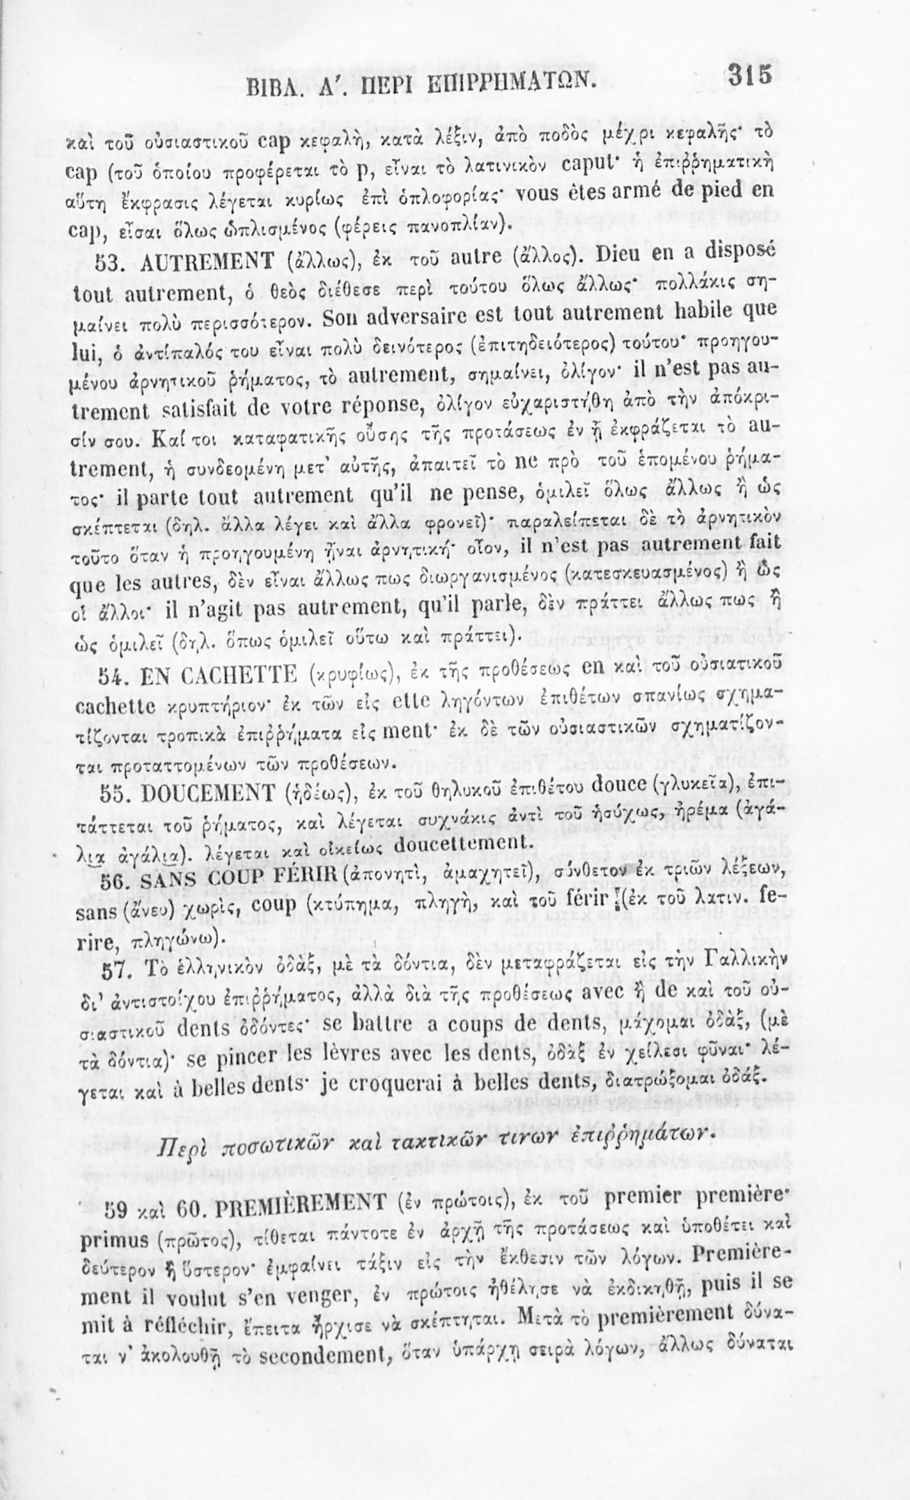 ΒΙΒΛ. Α΄. ΠΕΡΙ ΕΠΙΡΡΗΜΑΤΩΝ. 315
καὶ τοῦ οὐσιαστικοῦ cap κεφαλὴ, κατὰ λέξιν, ἀπὸ ποδὸς μέχρι κεφαλῆς· τὸ
cap (τοῦ ὁποίου προφέρεται τὸ p, εἶναι τὸ λατινικὸν caput· ἡ ἐπιῤῥηματικὴ
αὕτη ἔκφρασις λέγεται κυρίως ἐπὶ ὁπλοφορίας· vous êtes armé de pied en
cap, εἶσαι ὅλως ὡπλισμένος (φέρεις πανοπλίαν).
53. AUTREMENT (ἄλλως), ἐκ τοῦ autre (ἄλλος). Dieu en a disposé
tout autrement, ὁ θεὸς διέθεσε περὶ τούτου ὅλως ἄλλως· πολλάκις ση-
μαίνει πολὺ περισσότερον. Son adversaire est tout autrement habile que
lui, ὁ ἀντίπαλός του εἶναι πολὺ δεινότερος (ἐπιτηδειότερος) τούτου· προηγου-
μένου ἀρνητικοῦ ῥήματος, τὸ autrement, σημαίνει, ὀλίγον· il n'est pas au-
trement satisfait de votre réponse, ὀλίγον εὐχαριστήθη ἀπὸ τὴν ἀπόκρι-
σίν σου. Καί τοι καταφατικῆς οὔσης τῆς προτάσεως ἐν ᾗ ἐκφράζεται τὸ au-
trement, ἡ συνδεομένη μετ' αὐτῆς, ἀπαιτεῖ τὸ ne πρὸ τοῦ ἑπομένου ῥήμα-
τος· il parle tout autrement qu'il ne pense, ὁμιλεῖ ὅλως ἄλλως ἢ ὡς
σκέπτεται (δηλ. ἄλλα λέγει καὶ ἄλλα φρονεῖ)· παραλείπεται δὲ τὸ ἀρνητικὸν
τοῦτο ὅταν ἡ προηγουμένη ᾖναι ἀρνητική· οἷον, il n'est pas autrement fait
que les autres, δὲν εἶναι ἄλλως πως διωργανισμένος (κατεσκευασμένος) ἢ ὡς
οἱ ἄλλοι· il n'agit pas autrement, qu'il parle, δὲν πράττει ἄλλως πως ἢ
ὡς ὁμιλεῖ (δηλ. ὅπως ὁμιλεῖ οὕτω καὶ πράττει).
54. EN CACHETTE (κρυφίως), ἐκ τῆς προθέσεως en καὶ τοῦ οὐσιατικοῦ
cachette κρυπτήριον· ἐκ τῶν εἰς ette ληγόντων ἐπιθέτων σπανίως σχημα-
τίζονται τροπικὰ ἐπιῤῥήματα εἰς ment· ἐκ δὲ τῶν οὐσιαστικῶν σχηματίζον-
ται προταττομένων τῶν προθέσεων.
55. DOUCEMENT (ἡδέως), ἐκ τοῦ θηλυκοῦ ἐπιθέτου douce (γλυκεῖα), ἐπι-
τάττεται τοῦ ῥήματος, καὶ λέγεται συχνάκις ἀντὶ τοῦ ἡσύχως, ἠρέμα (ἀγά-
λια ἀγάλια). λέγεται καὶ οἰκείως doucettement.
56. SANS COUP FÉRIR (ἀπονητὶ, ἀμαχητεὶ), σύνθετον ἐκ τριῶν λέξεων,
sans (ἄνευ) χωρὶς, coup (κτύπημα, πληγὴ, καὶ τοῦ férir (ἐκ τοῦ λατιν. fe-
rire, πληγώνω).
57. Τὸ ἑλληνικὸν ὀδὰξ, μὲ τὰ δόντια, δὲν μεταφράζεται εἰς τὴν Γαλλικὴν
δι' ἀντιστοίχου ἐπιῤῥήματος, ἀλλὰ διὰ τῆς προθέσεως avec ἢ de καὶ τοῦ οὐ-
σιαστικοῦ dents ὀδόντες· se battre a coups de dents, μάχομαι ὀδὰξ, (μὲ
τὰ δόντια)· se pincer les lèvres avec les dents, ὀδὰξ ἐν χείλεσι φῦναι· λέ-
γεται καὶ à belles dents· je croquerai à belles dents, διατρώξομαι ὀδάξ.
Περὶ ποσωτικῶν καὶ τακτικῶν τινων ἐπιῤῥημάτων.
59 καὶ 60. PREMIÈREMENT (ἐν πρώτοις), ἐκ τοῦ premier première·
primus (πρῶτος), τίθεται πάντοτε ἐν ἀρχῇ τῆς προτάσεως καὶ ὑποθέτει καὶ
δεύτερον ἢ ὕστερον· ἐμφαίνει τάξιν εἰς τὴν ἔκθεσιν τῶν λόγων. Première-
ment il voulut s'en venger, ἐν πρώτοις ἠθέλησε νὰ ἐκδικηθῇ, puis il se
mit à réfléchir, ἔπειτα ἤρχισε νὰ σκέπτηται. Μετὰ τὸ premièrement δύνα-
ται ν' ἀκολουθῇ τὸ secondement, ὅταν ὑπάρχῃ σειρὰ λόγων, ἄλλως δύναται